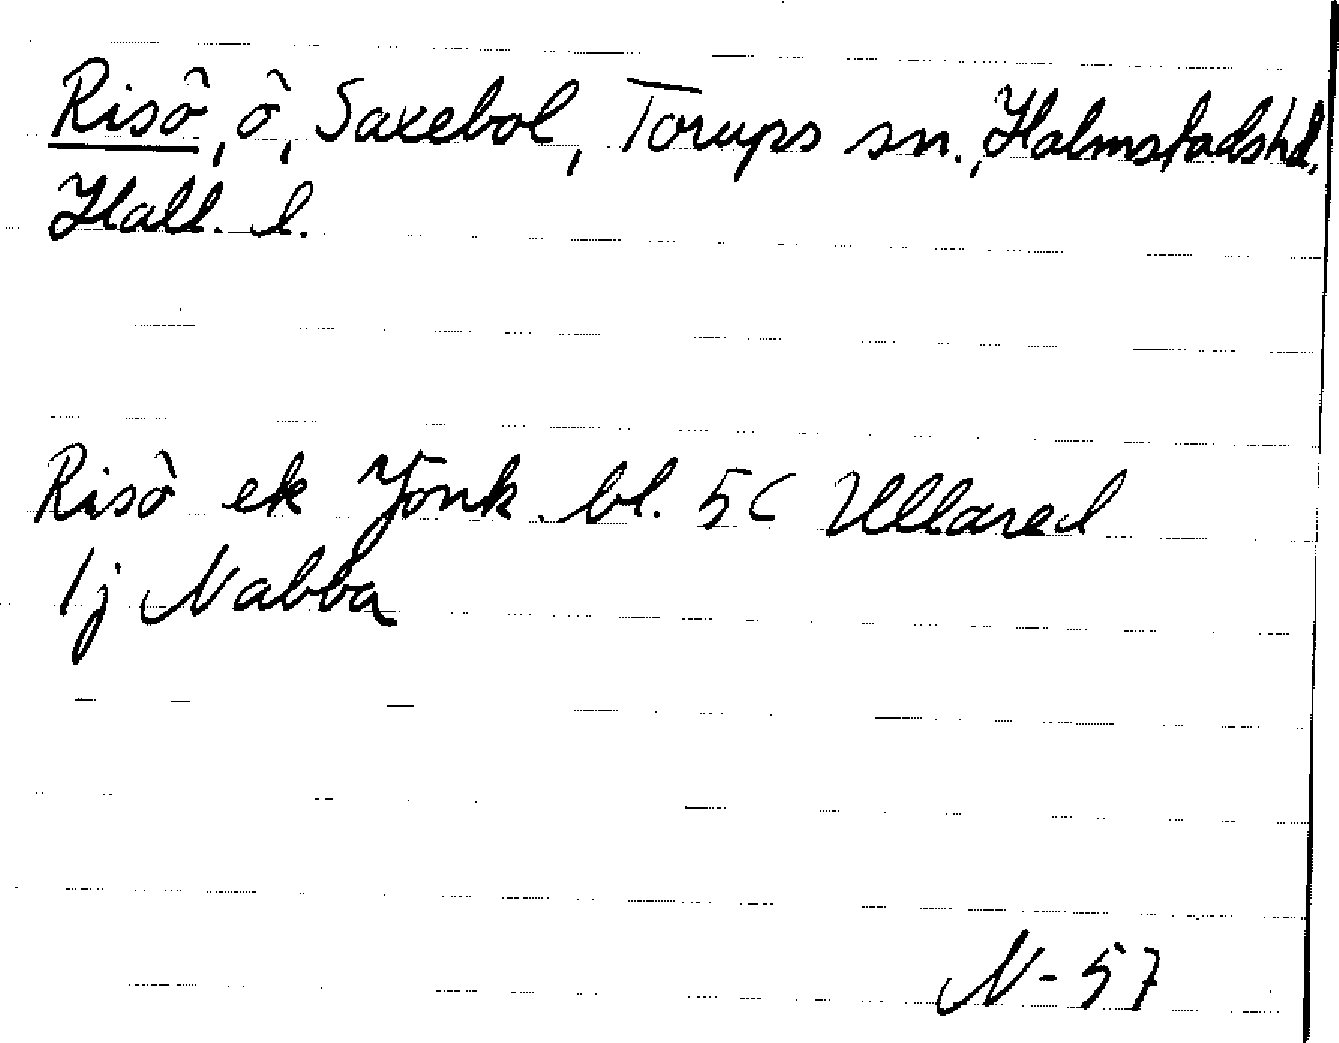 Risö, ö, Saxebol, Torups sn., Halmstads hd,
Hall. l.
Risö ek Jönk. bl. 5C Ullared
1j Nabba
N-57